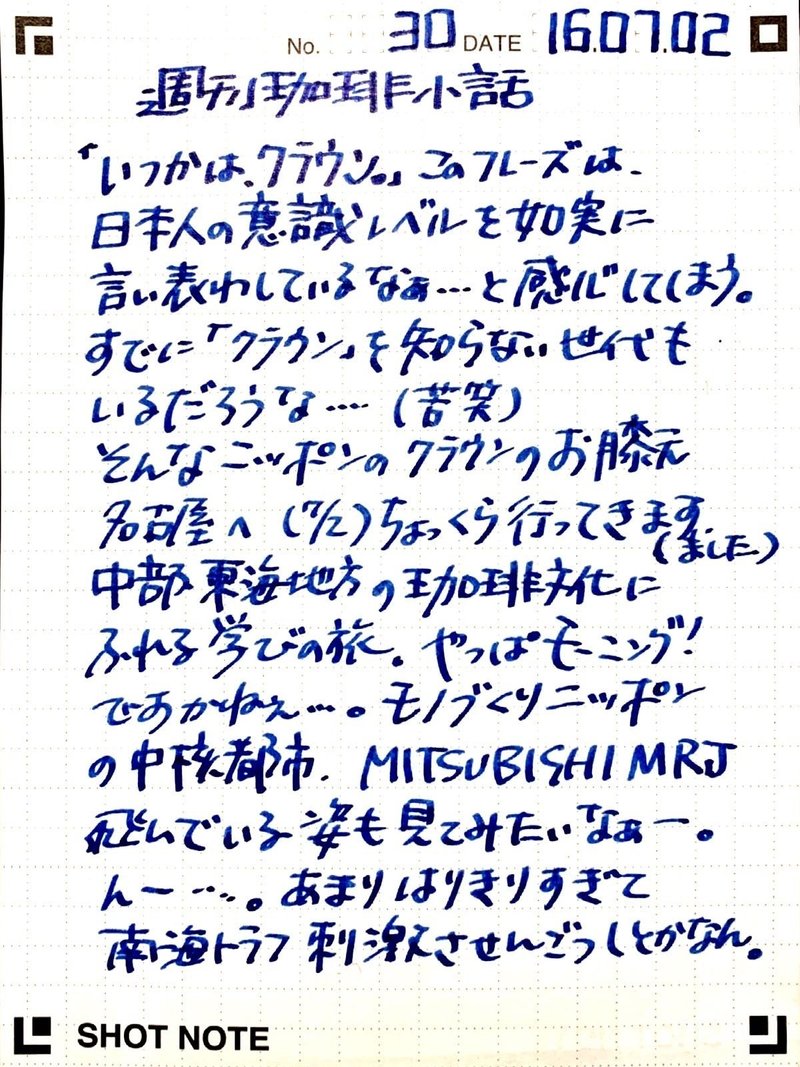 No. 30 DATE 16.07.02
週刊珈琲小話
「いつかは、クラウン。」このフレーズは、
日本人の意識レベルを如実に
言い表わしているなぁ…と感心してしまう。
すでに「クラウン」を知らない世代も
いるだろうな…. (苦笑)
そんなニッポンのクラウンのお膝元
名古屋へ (7/2) ちょっくら行ってきます。
(ました。)
中部東海地方の珈琲文化に
ふれる学びの旅。やっぱモーニング!
ですかねぇ…。モノづくりニッポン
の中核都市、MITSUBISHI MRJ
飛んでいる姿も見てみたいなぁー。
んー….。あまりはりきりすぎて
南海トラフ刺激させんごつしとかなん。
SHOT NOTE